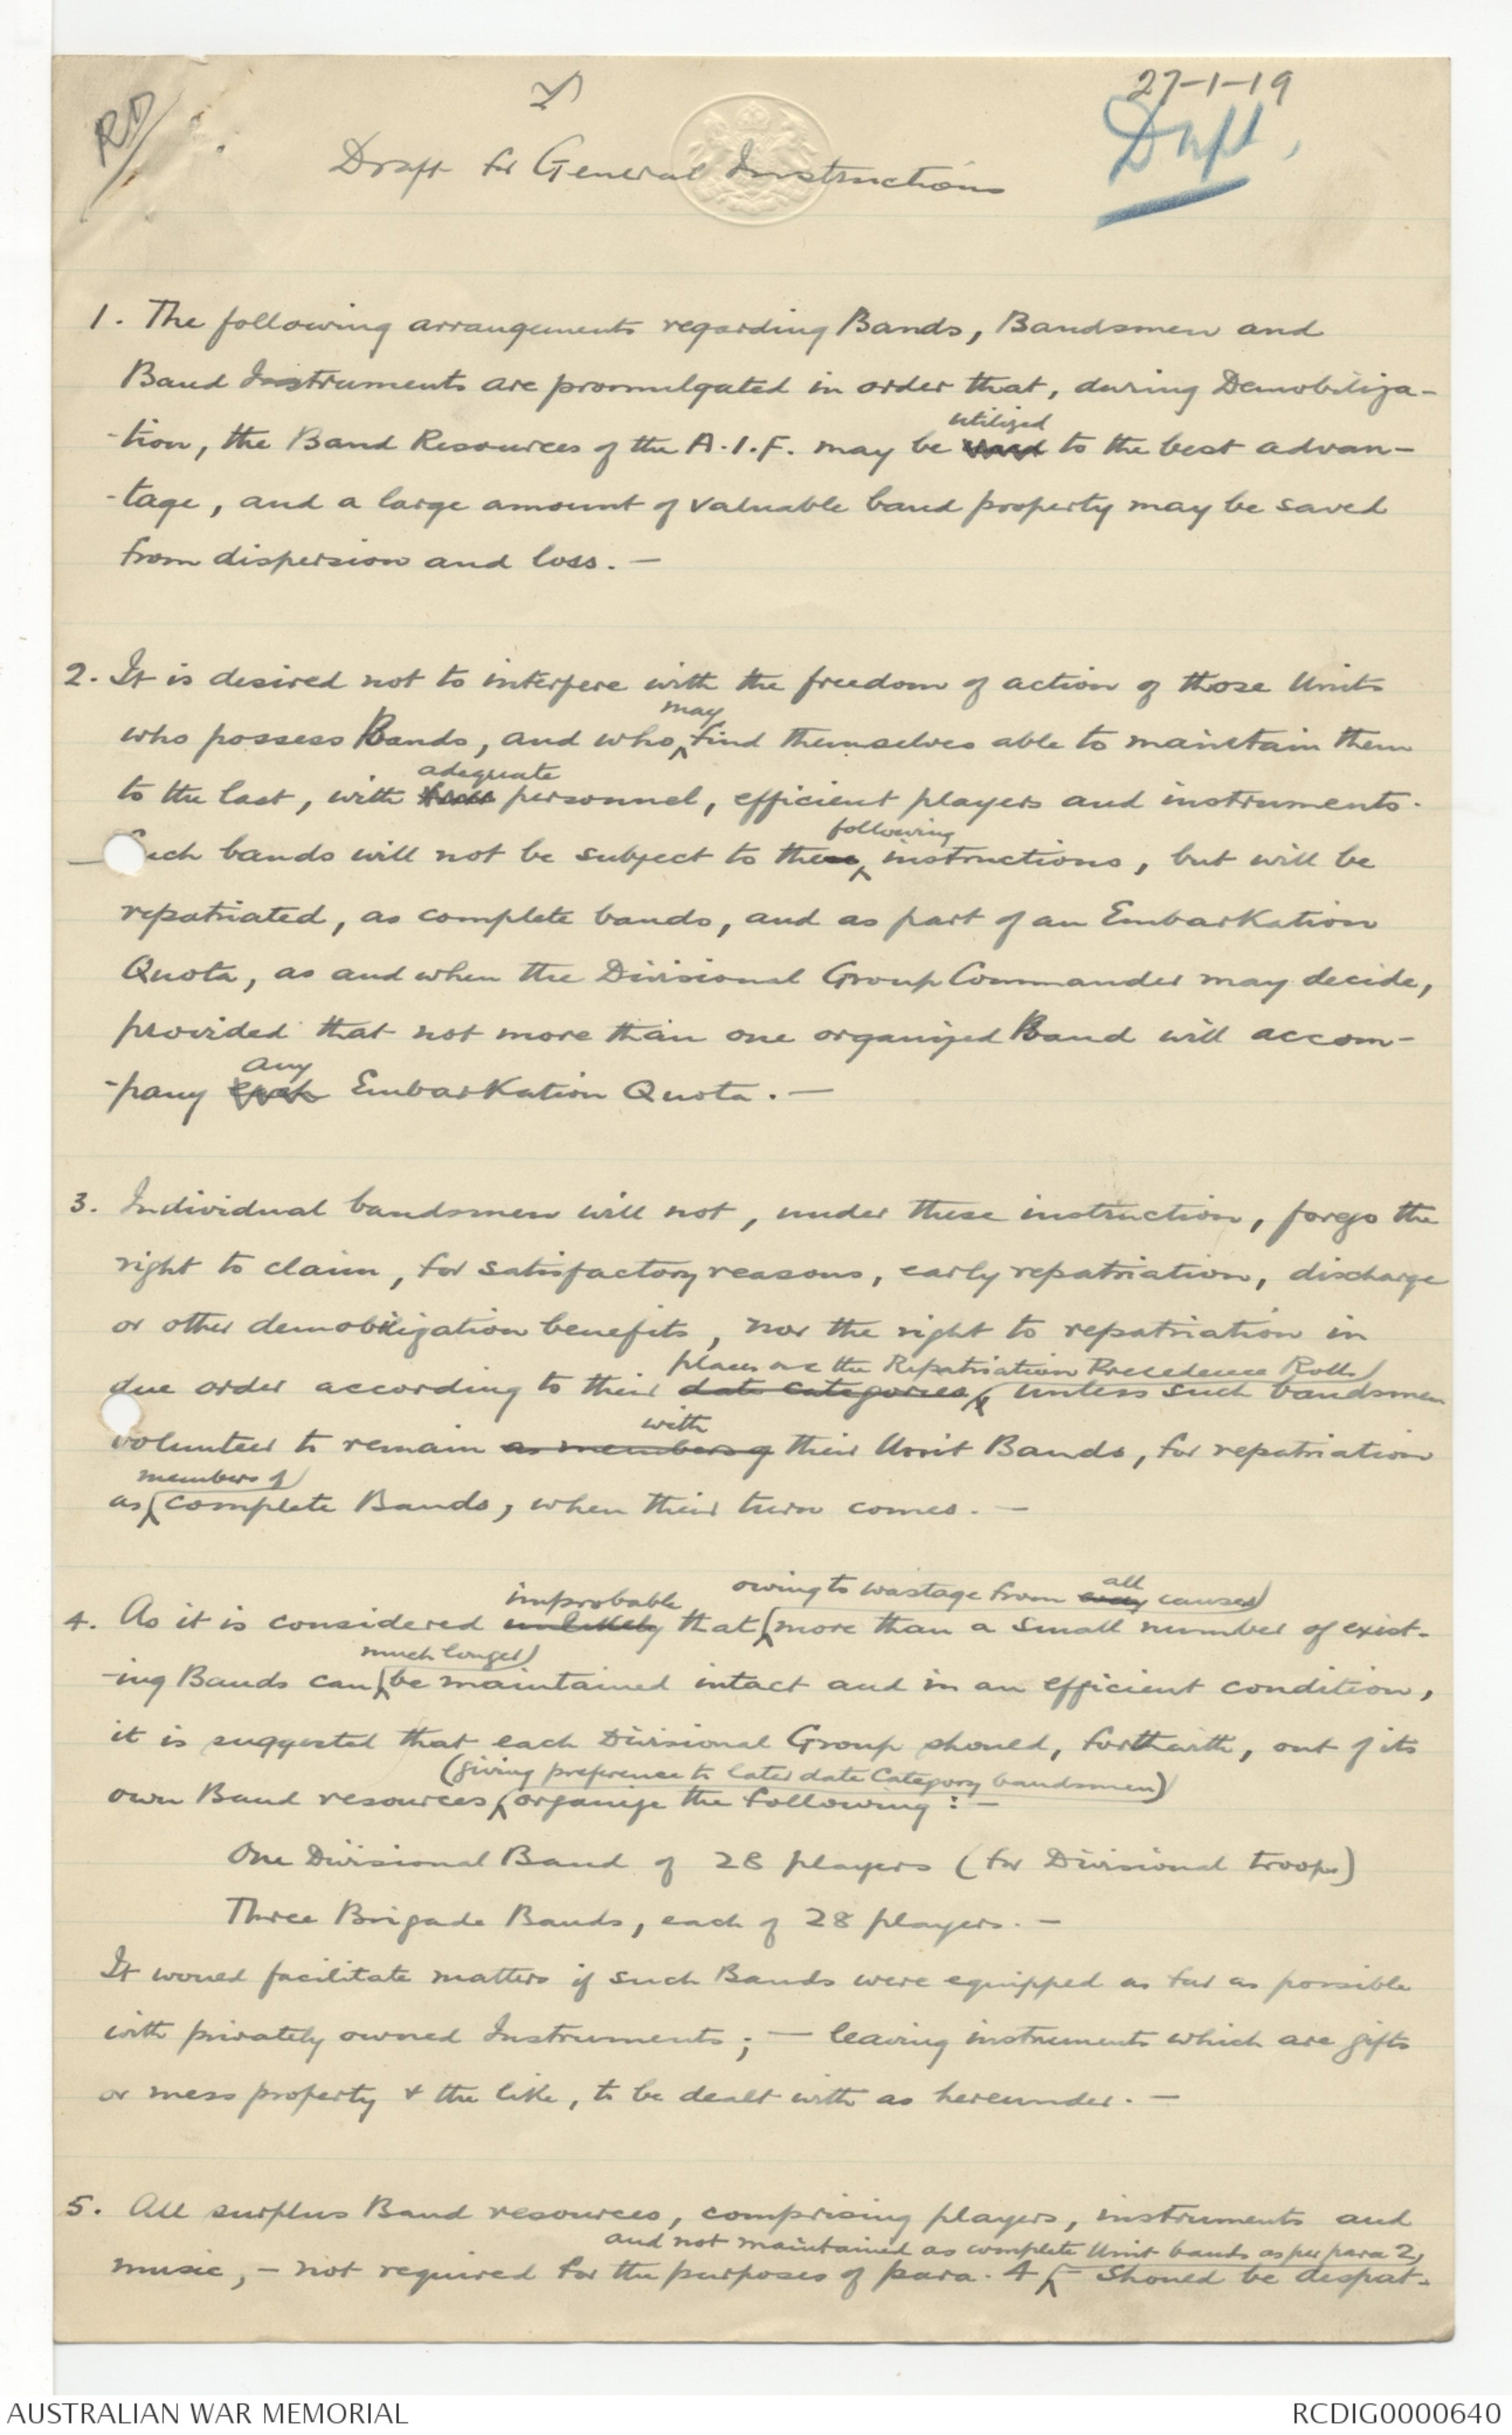 27-1-19
RD
Draft,
Draft for General Instructions
1. The following arrangements regarding Bands, Bandsmen and
Band Instruments are promulgated in order that, during Demobiliza-
utilized
-tion, the Band Resources of the A.I.F. may be used to the best advan-
-tage, and a large amount of valuable band property may be saved
from dispersion and loss. —
2. It is desired not to interfere with the freedom of action of those Units
may
who possess Bands, and who find themselves able to maintain them
adequate
to the last, with personnel, efficient players and instruments.
following
— Such bands will not be subject to these instructions, but will be
repatriated, as complete bands, and as part of an Embarkation
Quota, as and when the Divisional Group Commander may decide,
provided that not more than one organized Band will accom-
any
-pany each Embarkation Quota. —
3. Individual bandsmen will not, under these instruction, forgo the
right to claim, for satisfactory reasons, early repatriation, discharge
or other demobilization benefits, nor the right to repatriation in
places on the Repatriation Precedence Rolls
due order according to their date categories, unless such bandsmen
with
volunteer to remain as members of their Unit Bands, for repatriation
members of
as complete Bands, when their turn comes. —
improbable owing to wastage from every all causes
4. As it is considered unlikely that more than a small number of exist-
much longer
-ing Bands can be maintained intact and in an efficient condition,
it is suggested that each Divisional Group should, forthwith, out of its
(giving preference to later date Category bandsmen)
own Band resources, organize the following :—
One Divisional Band of 28 players (for Divisional troops)
Three Brigade Bands, each of 28 players. —
It would facilitate matters if such Bands were equipped as far as possible
with privately owned Instruments; — leaving instruments which are gifts
or mess property & the like, to be dealt with as hereunder. —
5. All surplus Band resources, comprising players, instruments and
and not maintained as complete Unit bands as per para 2,
music, — not required for the purposes of para. 4 — should be despat-
AUSTRALIAN WAR MEMORIAL
RCDIG0000640